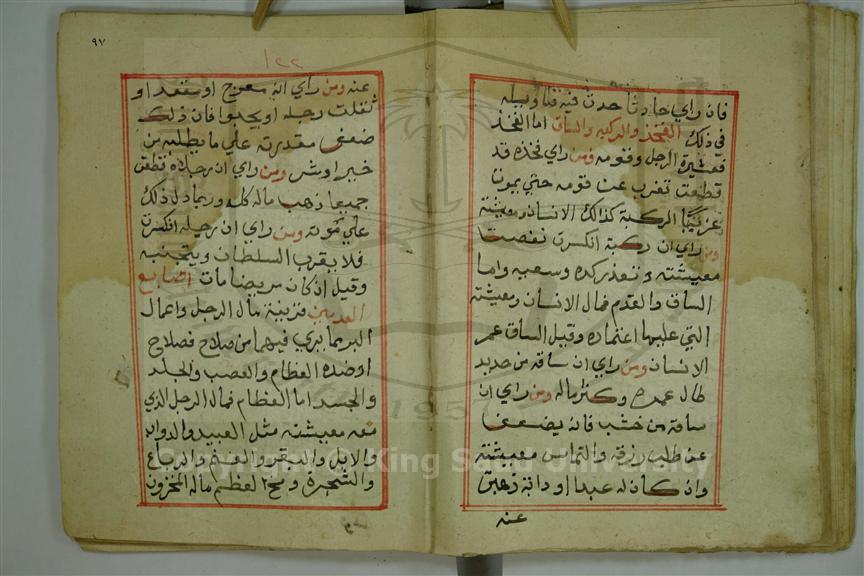 فان راي حادثا حدث فيه فتاويله
في ذلك الفخذ والركبه والساق اما الفخذ
فعشيرة الرجل وقومه ومن راي فخذه قد
قطعت تغرب عن قومه حتي يموت
غريبًا الركبة كذالك الانسان ومعيشته
ومن راي ان ركبة انكسرت نقصت
معيشته وتعذر كده وسعيه واما
الساق والقدم فمال الانسان ومعيشته
التي عليها اعتماده وقيل الساق عمر
الانسان ومن راي ان ساقه من حديد
طال عمره وكثر ماله ومن راي ان
ساقه من خشب فانه يضعف
عن طلب رزقه والتماس معيشته
وان كان له عبدا او دابة ذهبت
عنه
٩٧
١٢٢
عنه ومن راي انه معوج او مقعد او
ثقلت رجله او يحبوا فان ذلك
ضعف مقدرته علي ما يطلبه من
خير او شر ومن راي ان رجلاه قطعن
جميعا ذهب ماله كله وربما دل ذلك
علي موته ومن راي ان رجله انكسرت
فلا يقرب السلطان ويتجنبه
وقيل ان كان مريضا مات اصابع
القدمين فزينة مال الرجل واعمال
البر بما يري فيهما من صلاح فصلاح
او ضده العظام والعصب والجلد
والجسد اما العظام فمال الرجل الذي
منه معيشته مثل العبيد والدواب
والابل والبقر والغنم والرباع
والشجرة ومخ العظم ماله المخزون
Copyright © King Saud University
195